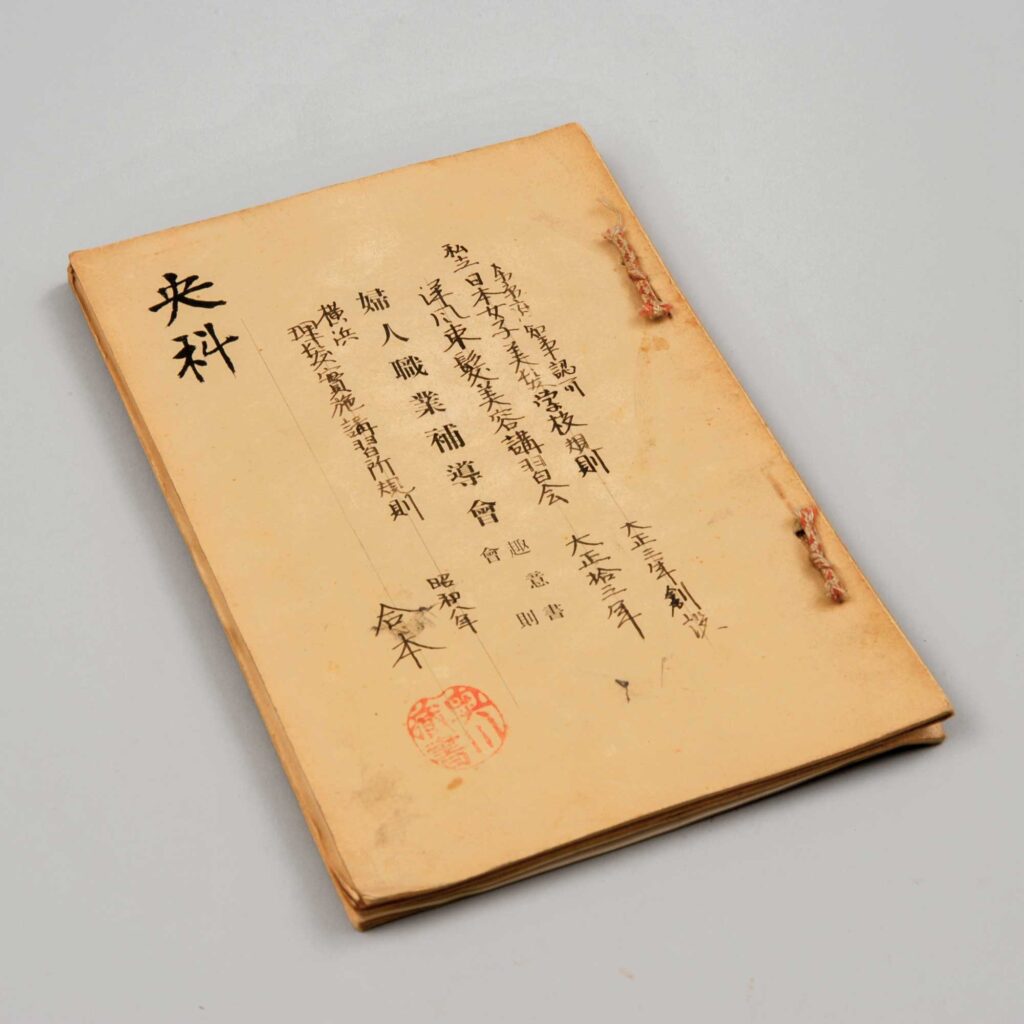 東京府知事認可
私立日本女子美髪学校規則
大正三年創設
洋風束髪美容講習会
大正拾三年
婦人職業補導會
趣意書
會則
横浜
理髪實施講習所規則
昭和八年
合本
央科
蔵書